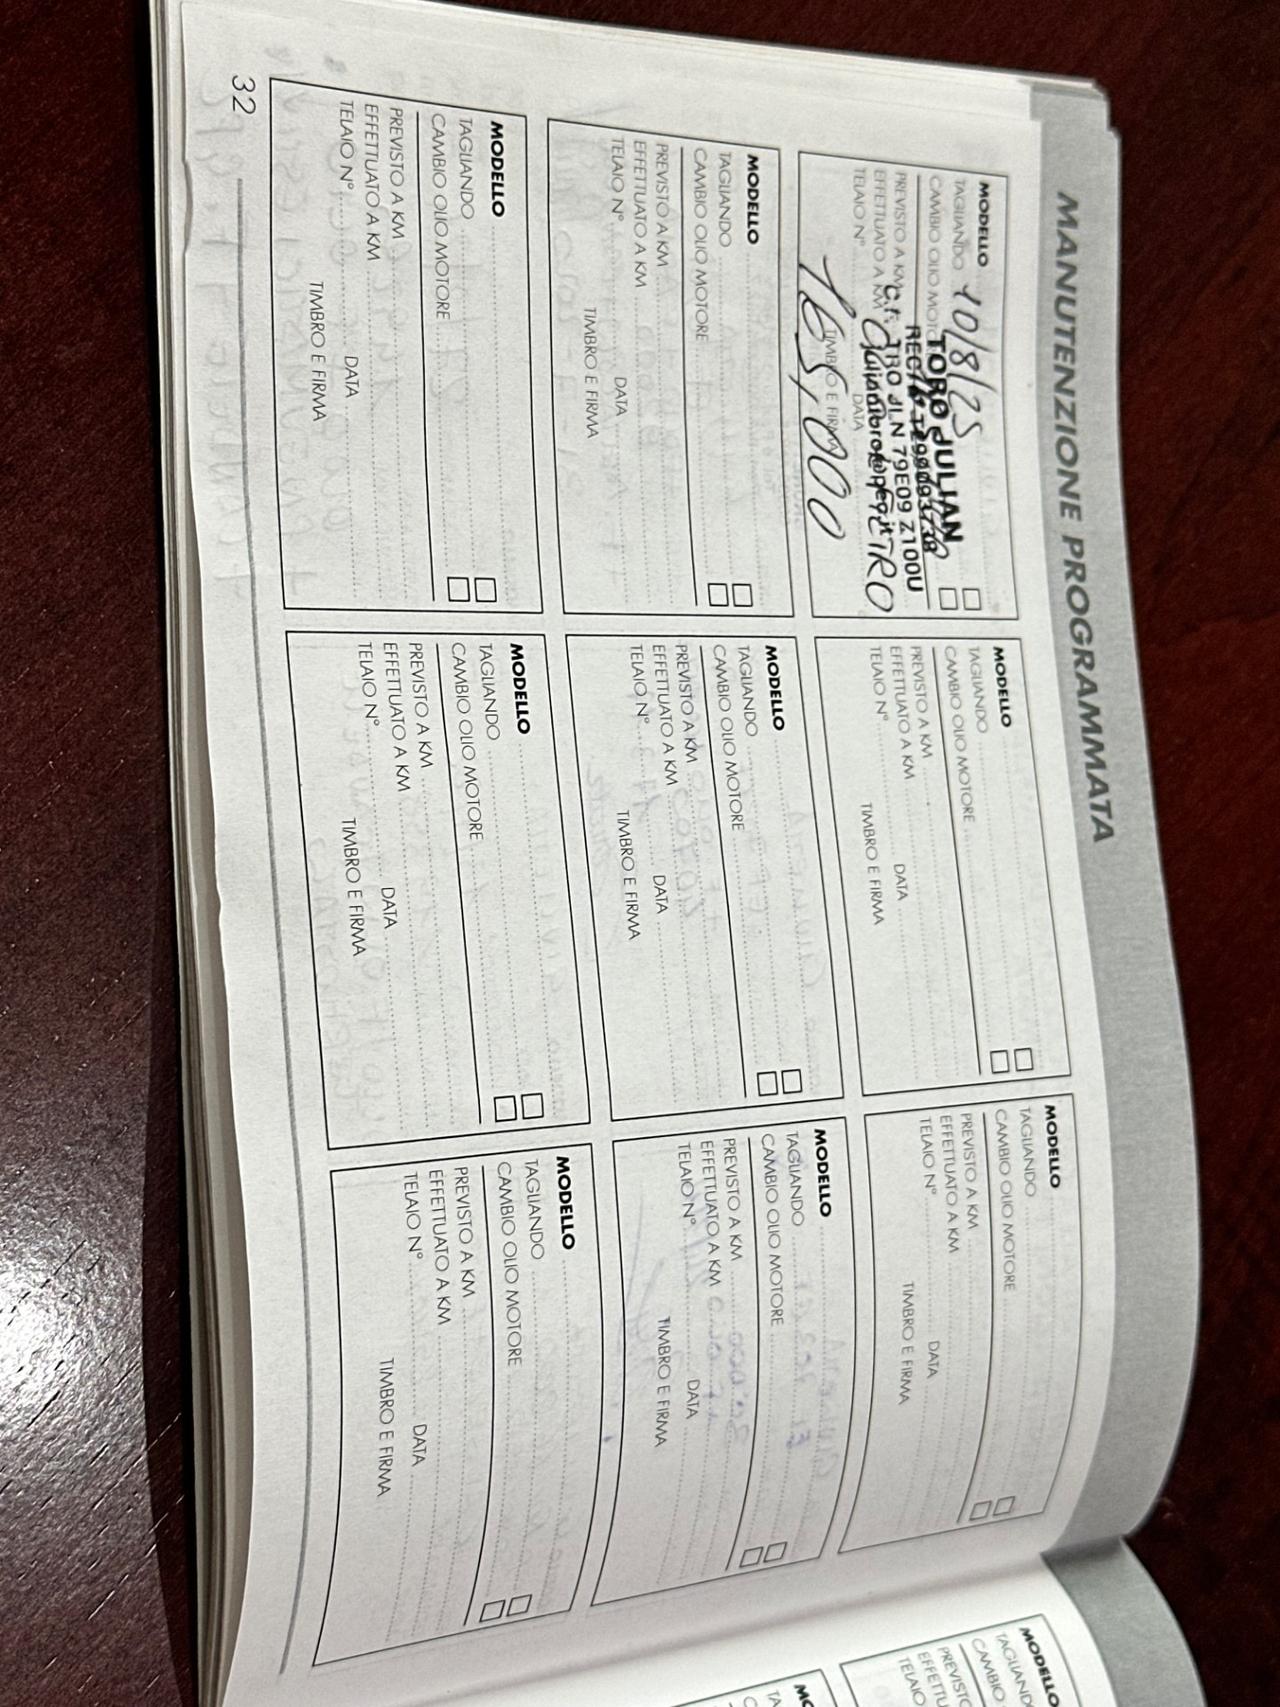 MANUTENZIONE PROGRAMMATA
MODELLO
TAGLIANDO 10/8/25
CAMBIO OLIO MOTORE
PREVISTO A KM
EFFETTUATO A KM
TELAIO N° DATA
TIMBRO E FIRMA
TORO JULIAN
C.F. TRO JLN 79E09 Z100U
165,000
MODELLO
TAGLIANDO
CAMBIO OLIO MOTORE
PREVISTO A KM
EFFETTUATO A KM
TELAIO N° DATA
TIMBRO E FIRMA
MODELLO
TAGLIANDO
CAMBIO OLIO MOTORE
PREVISTO A KM
EFFETTUATO A KM
TELAIO N° DATA
TIMBRO E FIRMA
MODELLO
TAGLIANDO
CAMBIO OLIO MOTORE
PREVISTO A KM
EFFETTUATO A KM
TELAIO N° DATA
TIMBRO E FIRMA
MODELLO
TAGLIANDO
CAMBIO OLIO MOTORE
PREVISTO A KM
EFFETTUATO A KM
TELAIO N° DATA
TIMBRO E FIRMA
MODELLO
TAGLIANDO
CAMBIO OLIO MOTORE
PREVISTO A KM
EFFETTUATO A KM
TELAIO N° DATA
TIMBRO E FIRMA
MODELLO
TAGLIANDO
CAMBIO OLIO MOTORE
PREVISTO A KM
EFFETTUATO A KM
TELAIO N° DATA
TIMBRO E FIRMA
MODELLO
TAGLIANDO
CAMBIO OLIO MOTORE
PREVISTO A KM
EFFETTUATO A KM
TELAIO N° DATA
TIMBRO E FIRMA
MODELLO
TAGLIANDO
CAMBIO OLIO MOTORE
PREVISTO A KM
EFFETTUATO A KM
TELAIO N° DATA
TIMBRO E FIRMA
32
MODELLO
TAGLIANDO
CAMBIO